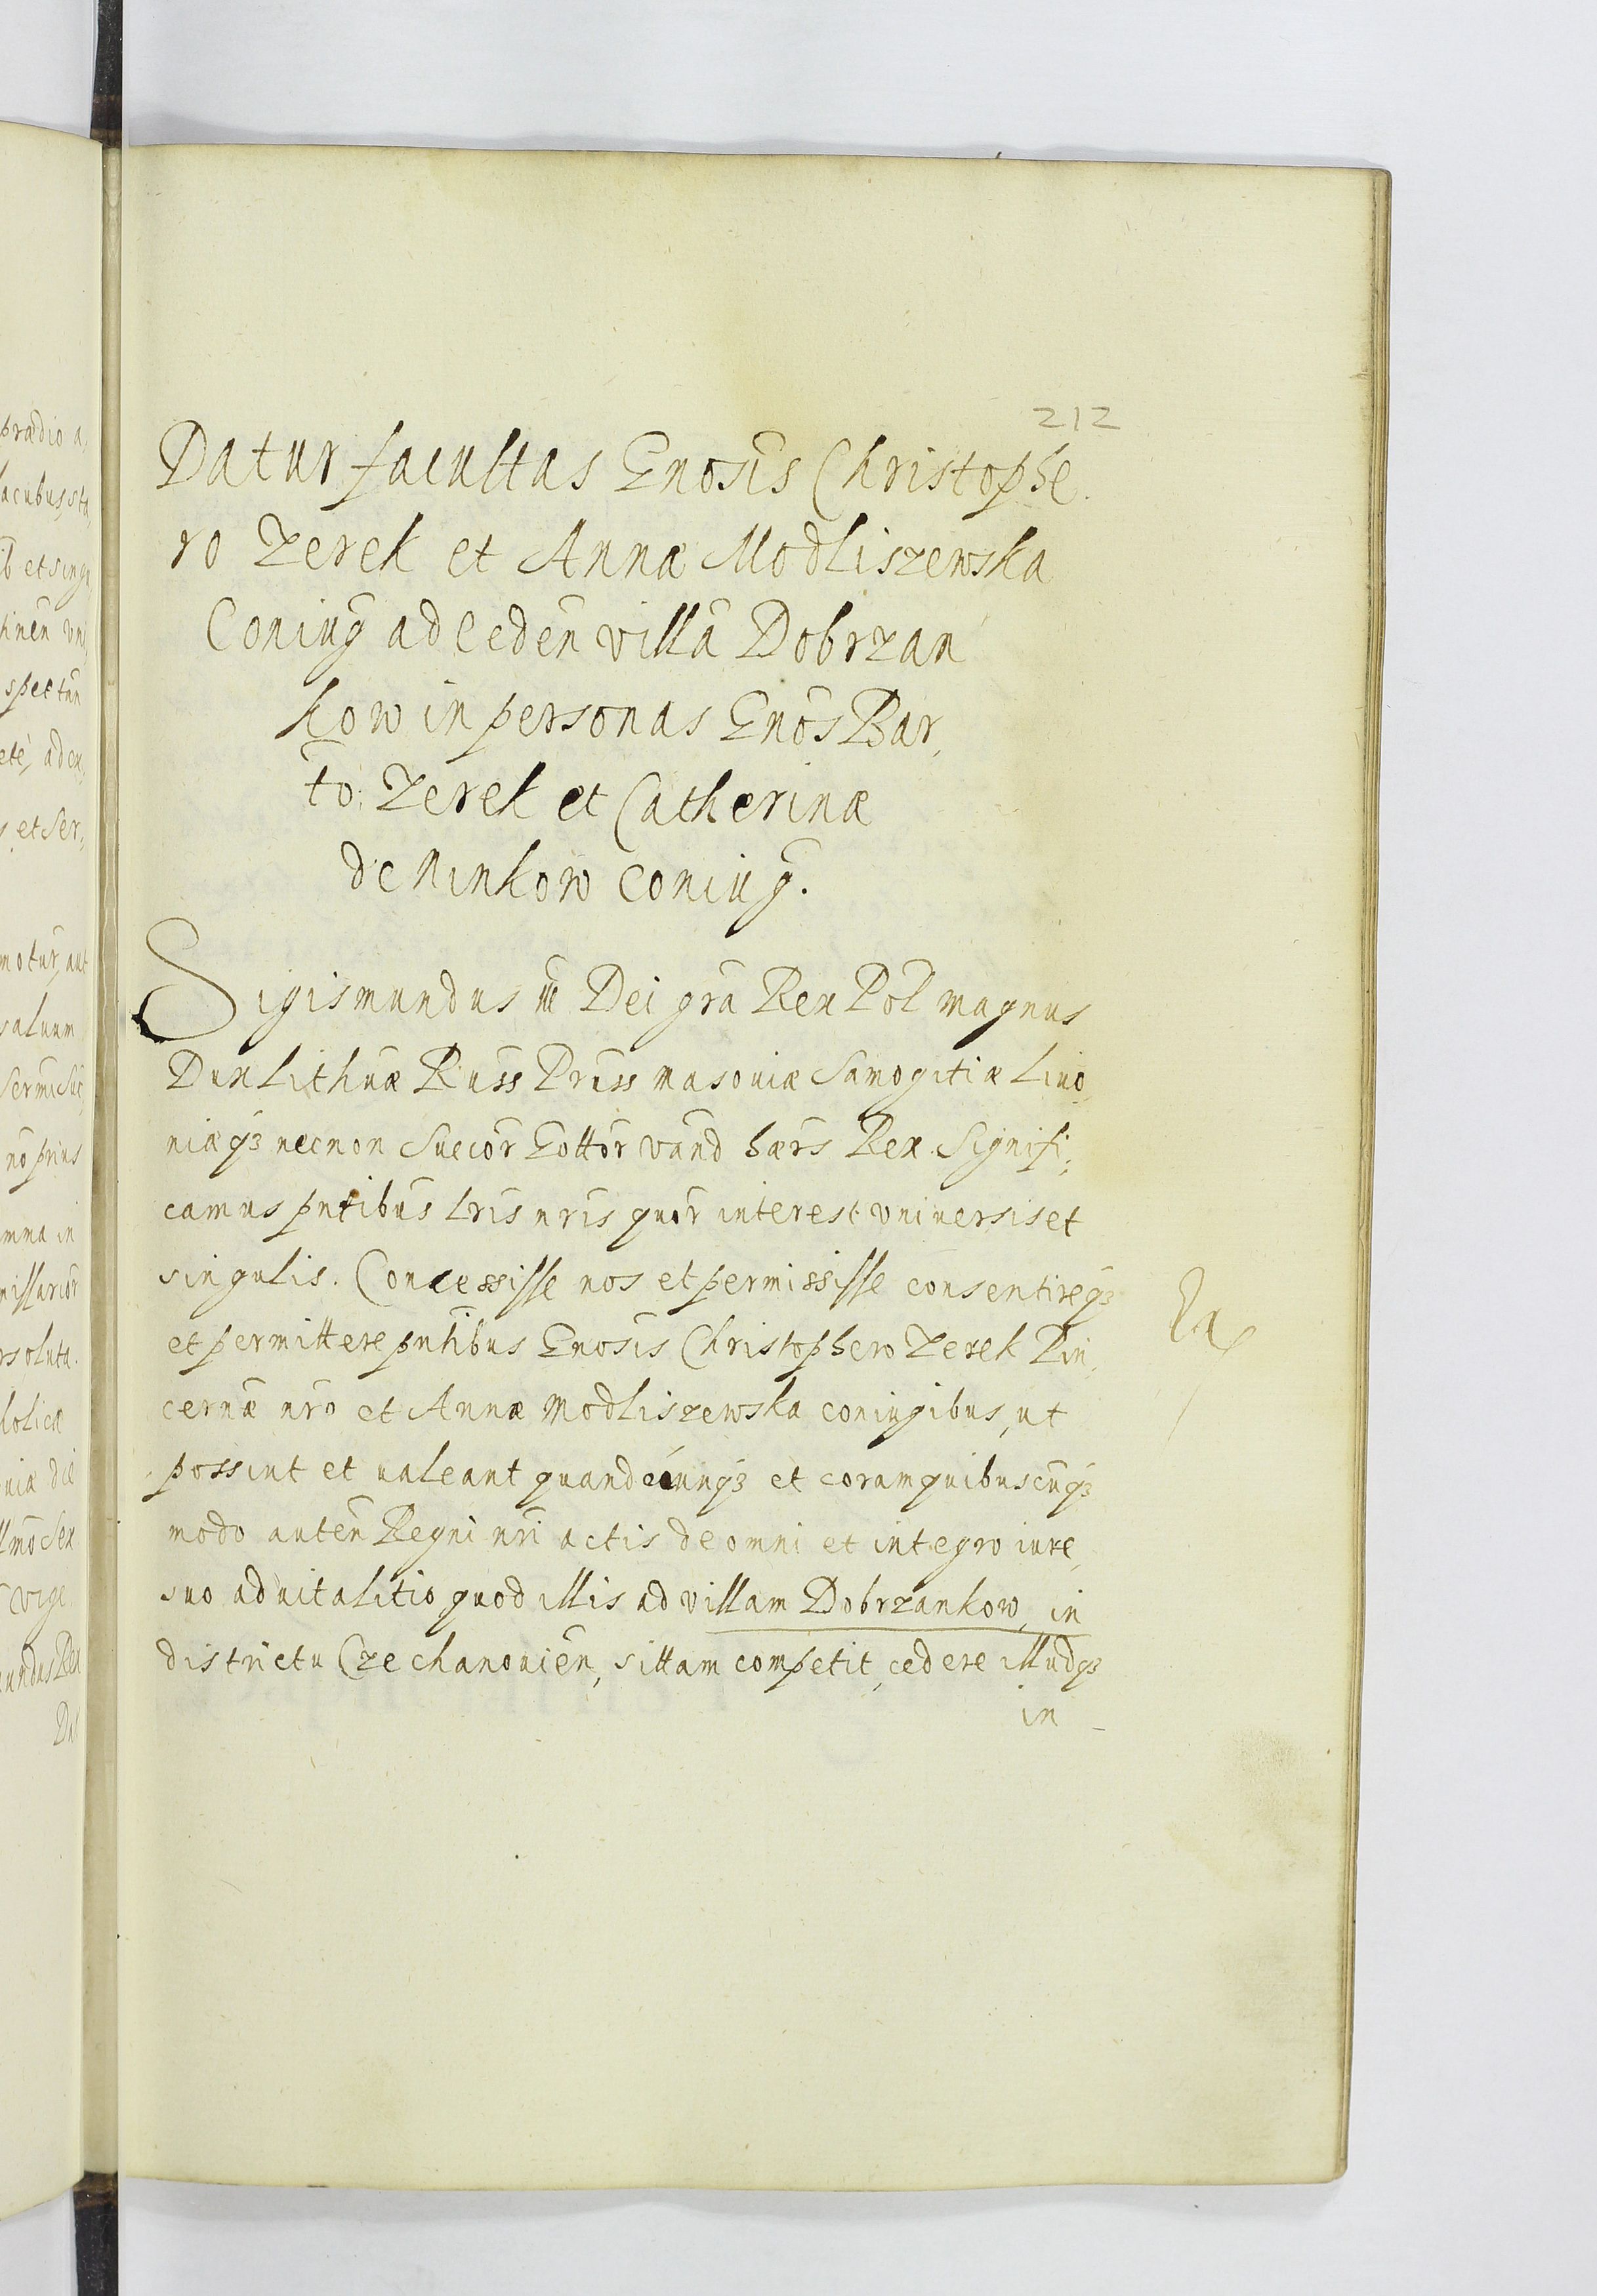 212
Datur facultas Gnosis Christophe
ro Zerek et Annæ Modliszewska
Coniug̃ ad Ceden̄ villã Dobrzan
kow in personas Gnos̃ Bar,
to: Zerek et Catherinæ
de Ninkow coniug̃.
Sigismundus III Dei grã Rex Pol̃ magnus
Dux Lithuæ Russ̃ Pruss̃ masouiæ Samogitiæ Liuo,
niæqꝫ necnon Suecor̃ Gottor̃ vand̃ hærs̃ Rex. Signifi;
camus pñtibus Lris̃ nris̃ quor̃ interest vniuersis et
singulis. Concessisse nos et permississe consentireqꝫ
et permittere pñtibus Gnosis̃ Christophero Zerek Pin,
cernæ nrõ et Annæ Modliszewska coniugibus, ut
possint et ualeant quandocunqꝫ et coram quibuscũqꝫ
modo auten̄ Regni nrĩ actis de omni et integro iure,
suo aduitalitio quod illis ad villam Dobrzankow, in
districtu Czechanouien̄, sittam competit, cedere illudqꝫ
in
prædio a,
lacubus, sta,
spectan
et Ser;
motur, aut
saluum
no prius
mma in
rsoluta.